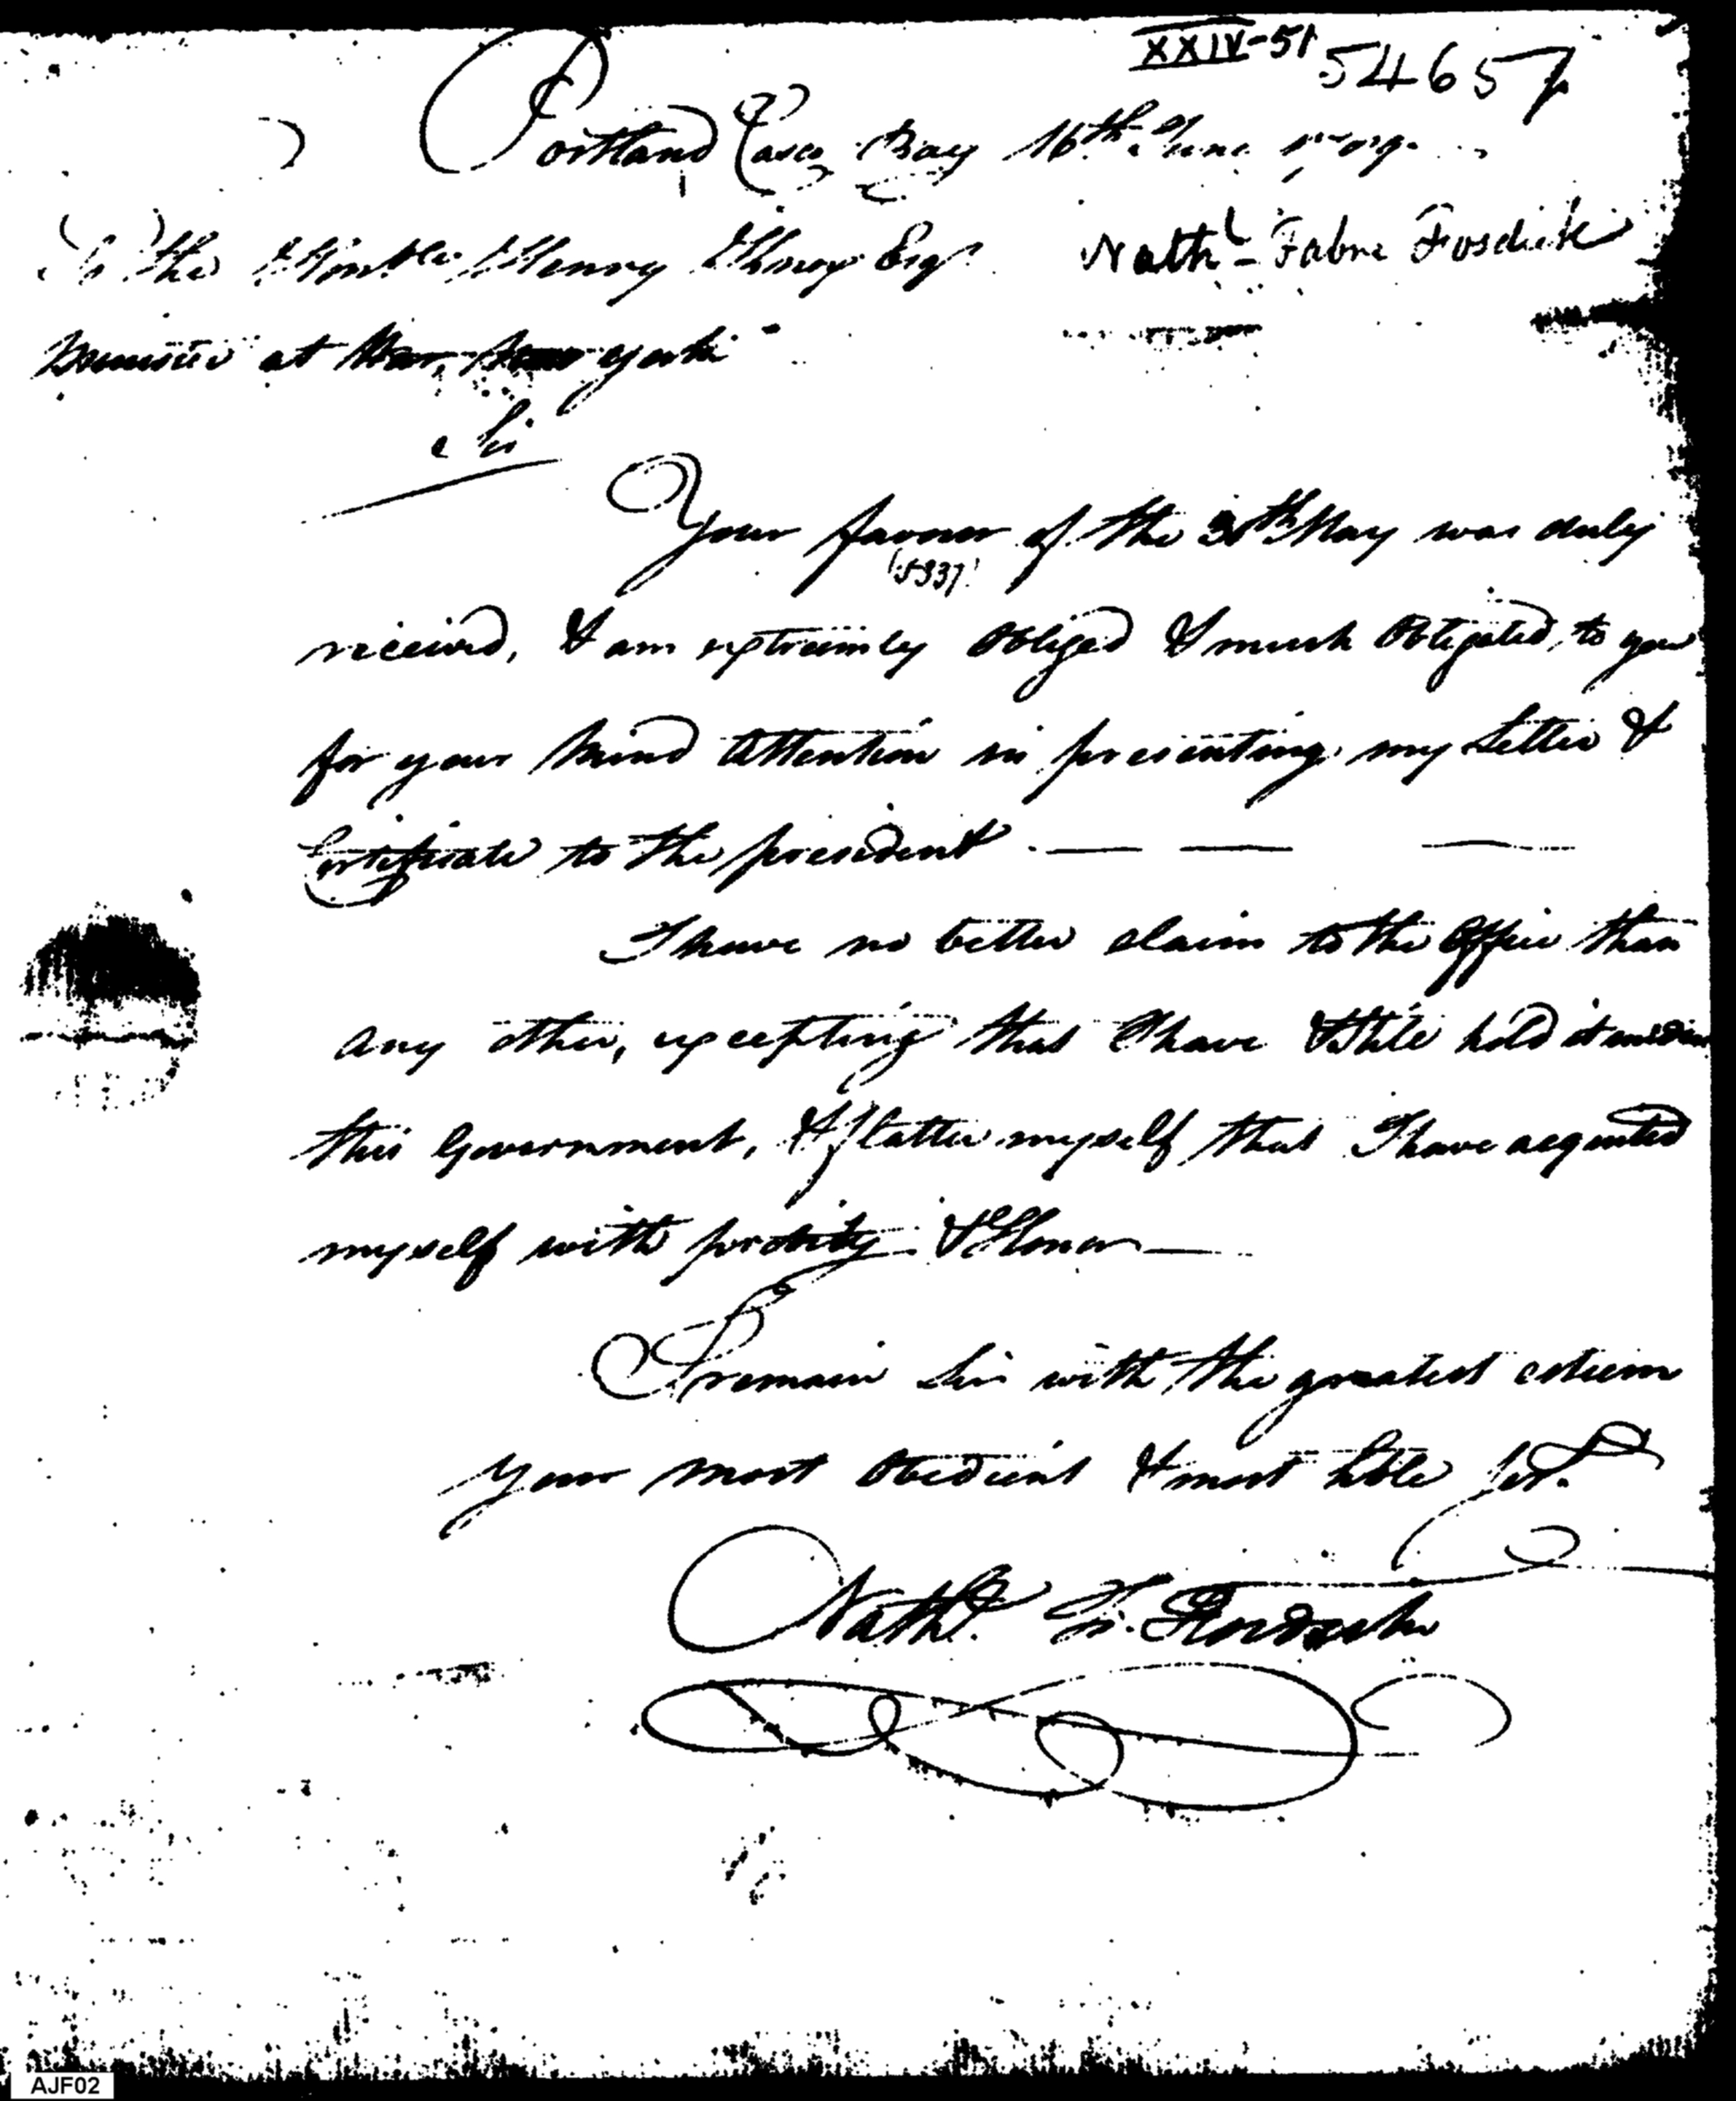 XXIV-51 54657
Portland Casco Bay 16th June 1789.
To the Honble. Henry Knox Esqr. Nathl- Fabre Fosdick
Minister at War, New york
Sir
Your favour of the 30th May was duly
(5337)
received, & am extreemly obliged & much obligated, to you
for your kind attention in presenting my Letter &
Certificate to the president
I have no better claim to the Office than
any other, excepting that I have & still hold it under
this Government, & flatter myself that I have acquited
myself with probity & Honor
I remain Sir with the greatest esteem
your most obedient & most hble Sert.
Nathl. F. Fosdick
AJF02